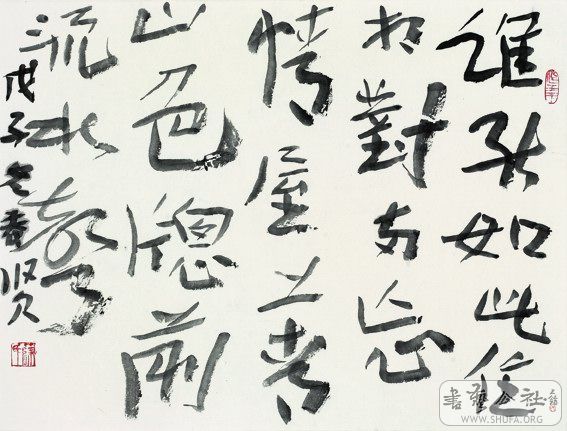 誰能如此
相對忘
情屋上青
山色窗前
流水聲
戊子
書藝公社
WWW.SHUFA.ORG